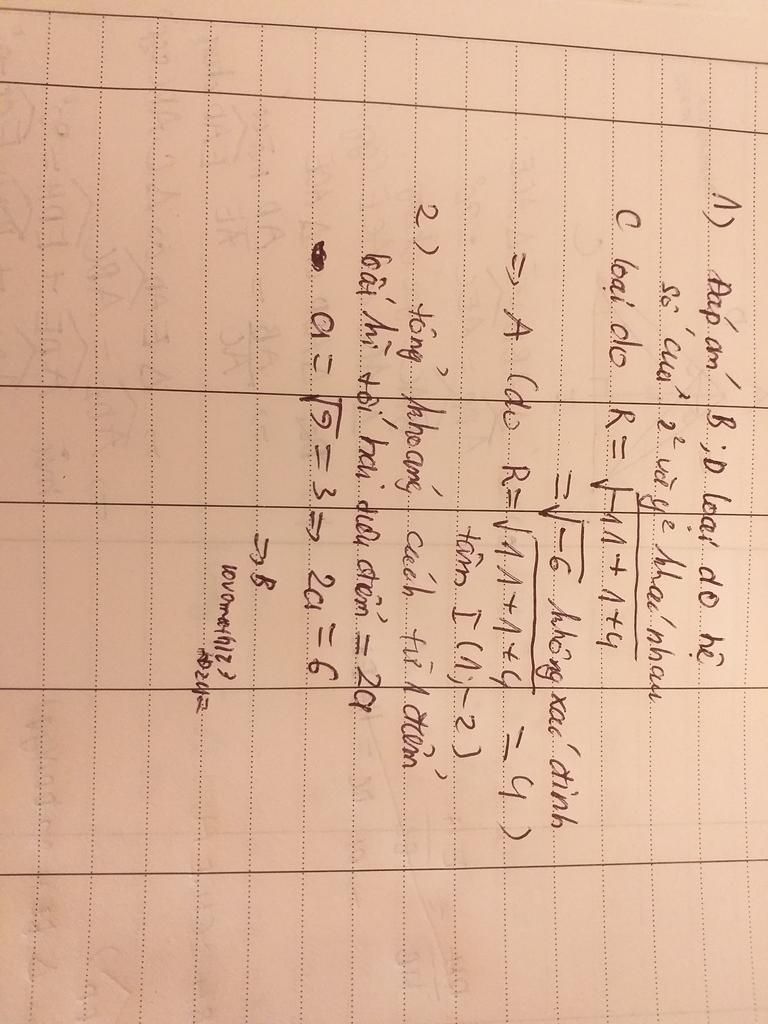 1) Đáp án B; D loại do hệ
số của x² và y² khác nhau
C loại do R = √-11+1+4
= √-6 không xác định
=> A (do R = √11+1+4 = 4)
tâm I (1; -2)
2) tổng khoảng cách từ 1 điểm
bất kì tới hai tiêu điểm = 2a
a = √9 = 3 => 2a = 6
=> B